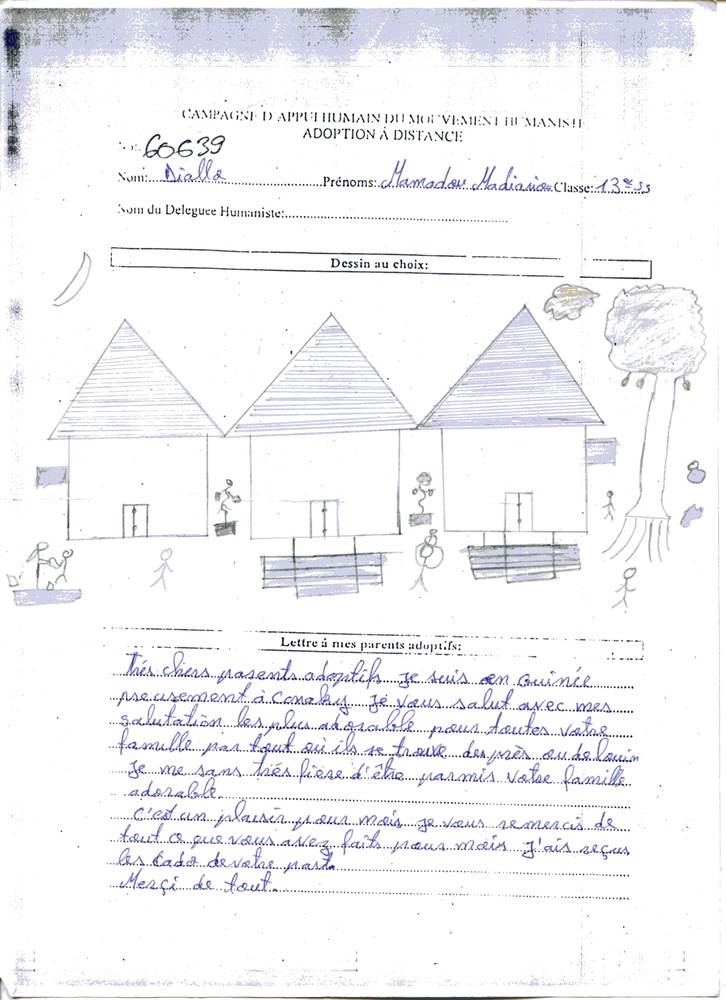 CAMPAGNE D'APPUI HUMAIN DU MOUVEMENT HUMANISTE
ADOPTION À DISTANCE
N°: 60639
Nom: Diallo Prénoms: Mamadou Madiariou Classe: 13e SS
Nom du Deleguee Humaniste:
Dessin au choix:
Lettre á mes parents adoptifs:
Trés chers parents adoptifs je suis en Guinée
preusement à Conaky je vous salut avec mes
salutation les plus adorable pour toutes votre
famille par tout où ils se trouve des près ou de louin
Je me sans trés fière d'être parmis votre famille
adorable.
C'est un plaisir pour mois je vous remercis de
tout ce que vous avez faits pour mois j'ais reçus
les Cado de votre part.
Merçi de tout.